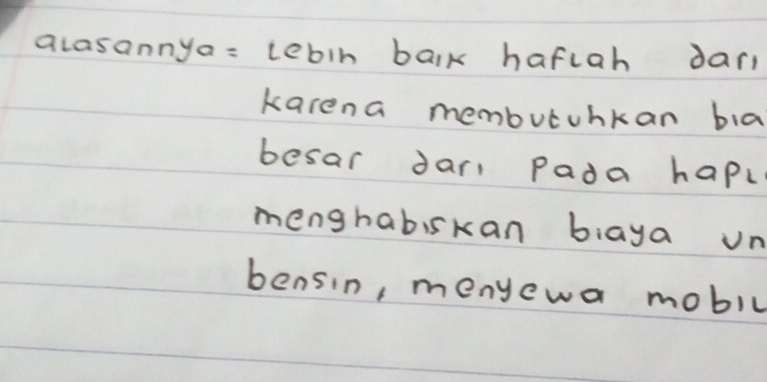 alasannya = Lebih baik haflah dari
karena membutuhkan bia
besar dari pada hapl
menghabiskan biaya un
bensin, menyewa mobil